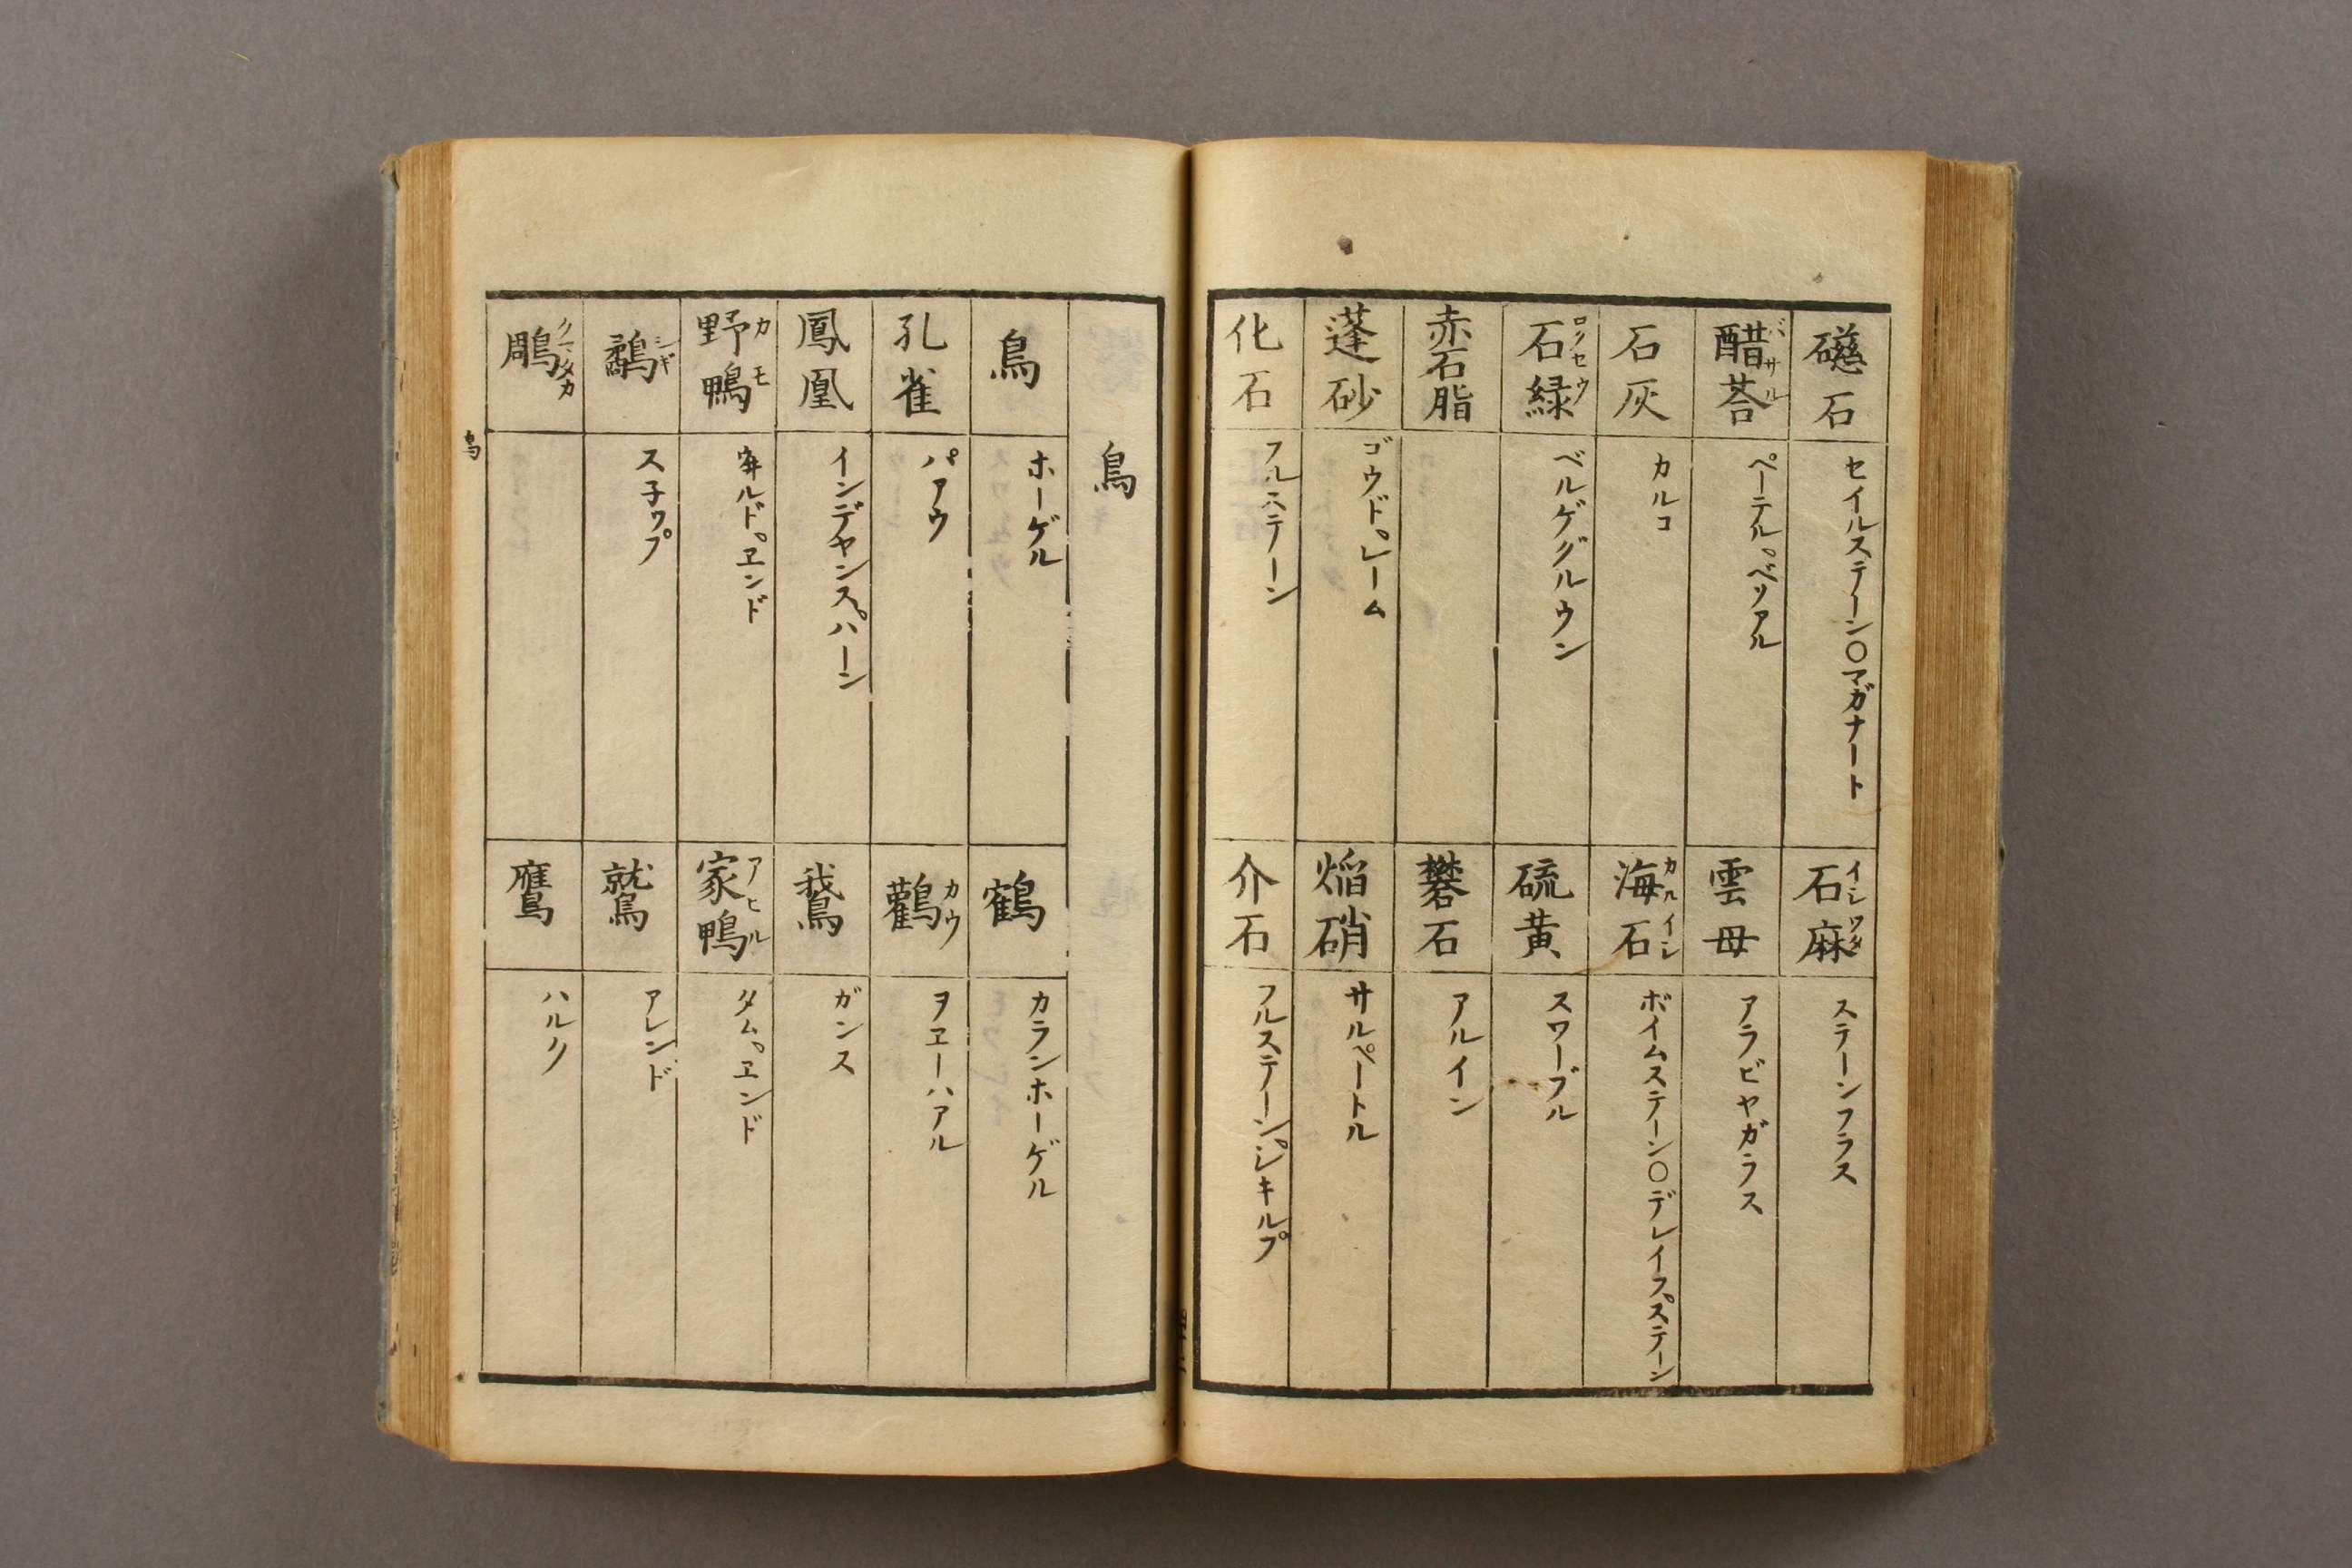 礠石 セイルステーン〇マガナート
石麻 イシワタ ステーンフラス
醋荅 バサル ペーテル。ベソアル
雲母 アラビヤガラス
石灰 カルコ
海石 カルイシ ボイムステーン〇デレイフ。ステーン
石緑 ロクセウ ベルゲグルウン
硫黄 スワーブル
赤石脂
礬石 アルイン
蓬砂 ゴウド。レーム
焔硝 サルペートル
化石 フルステーン
介石 フルステーン。シキルプ
鳥
鳥 ホーゲル
鶴 カランホーゲル
孔雀 パアウ
鸛 カウ ヲヱーハアル
鳳凰 インデヤンス。ハーン
鵞 ガンス
野鴨 カモ ヰルド。ヱンド
家鴨 アヒル タム。ヱンド
鷸 シギ スネップ
鷲 アレンド
鵰 クマタカ
鷹 ハルク
鳥